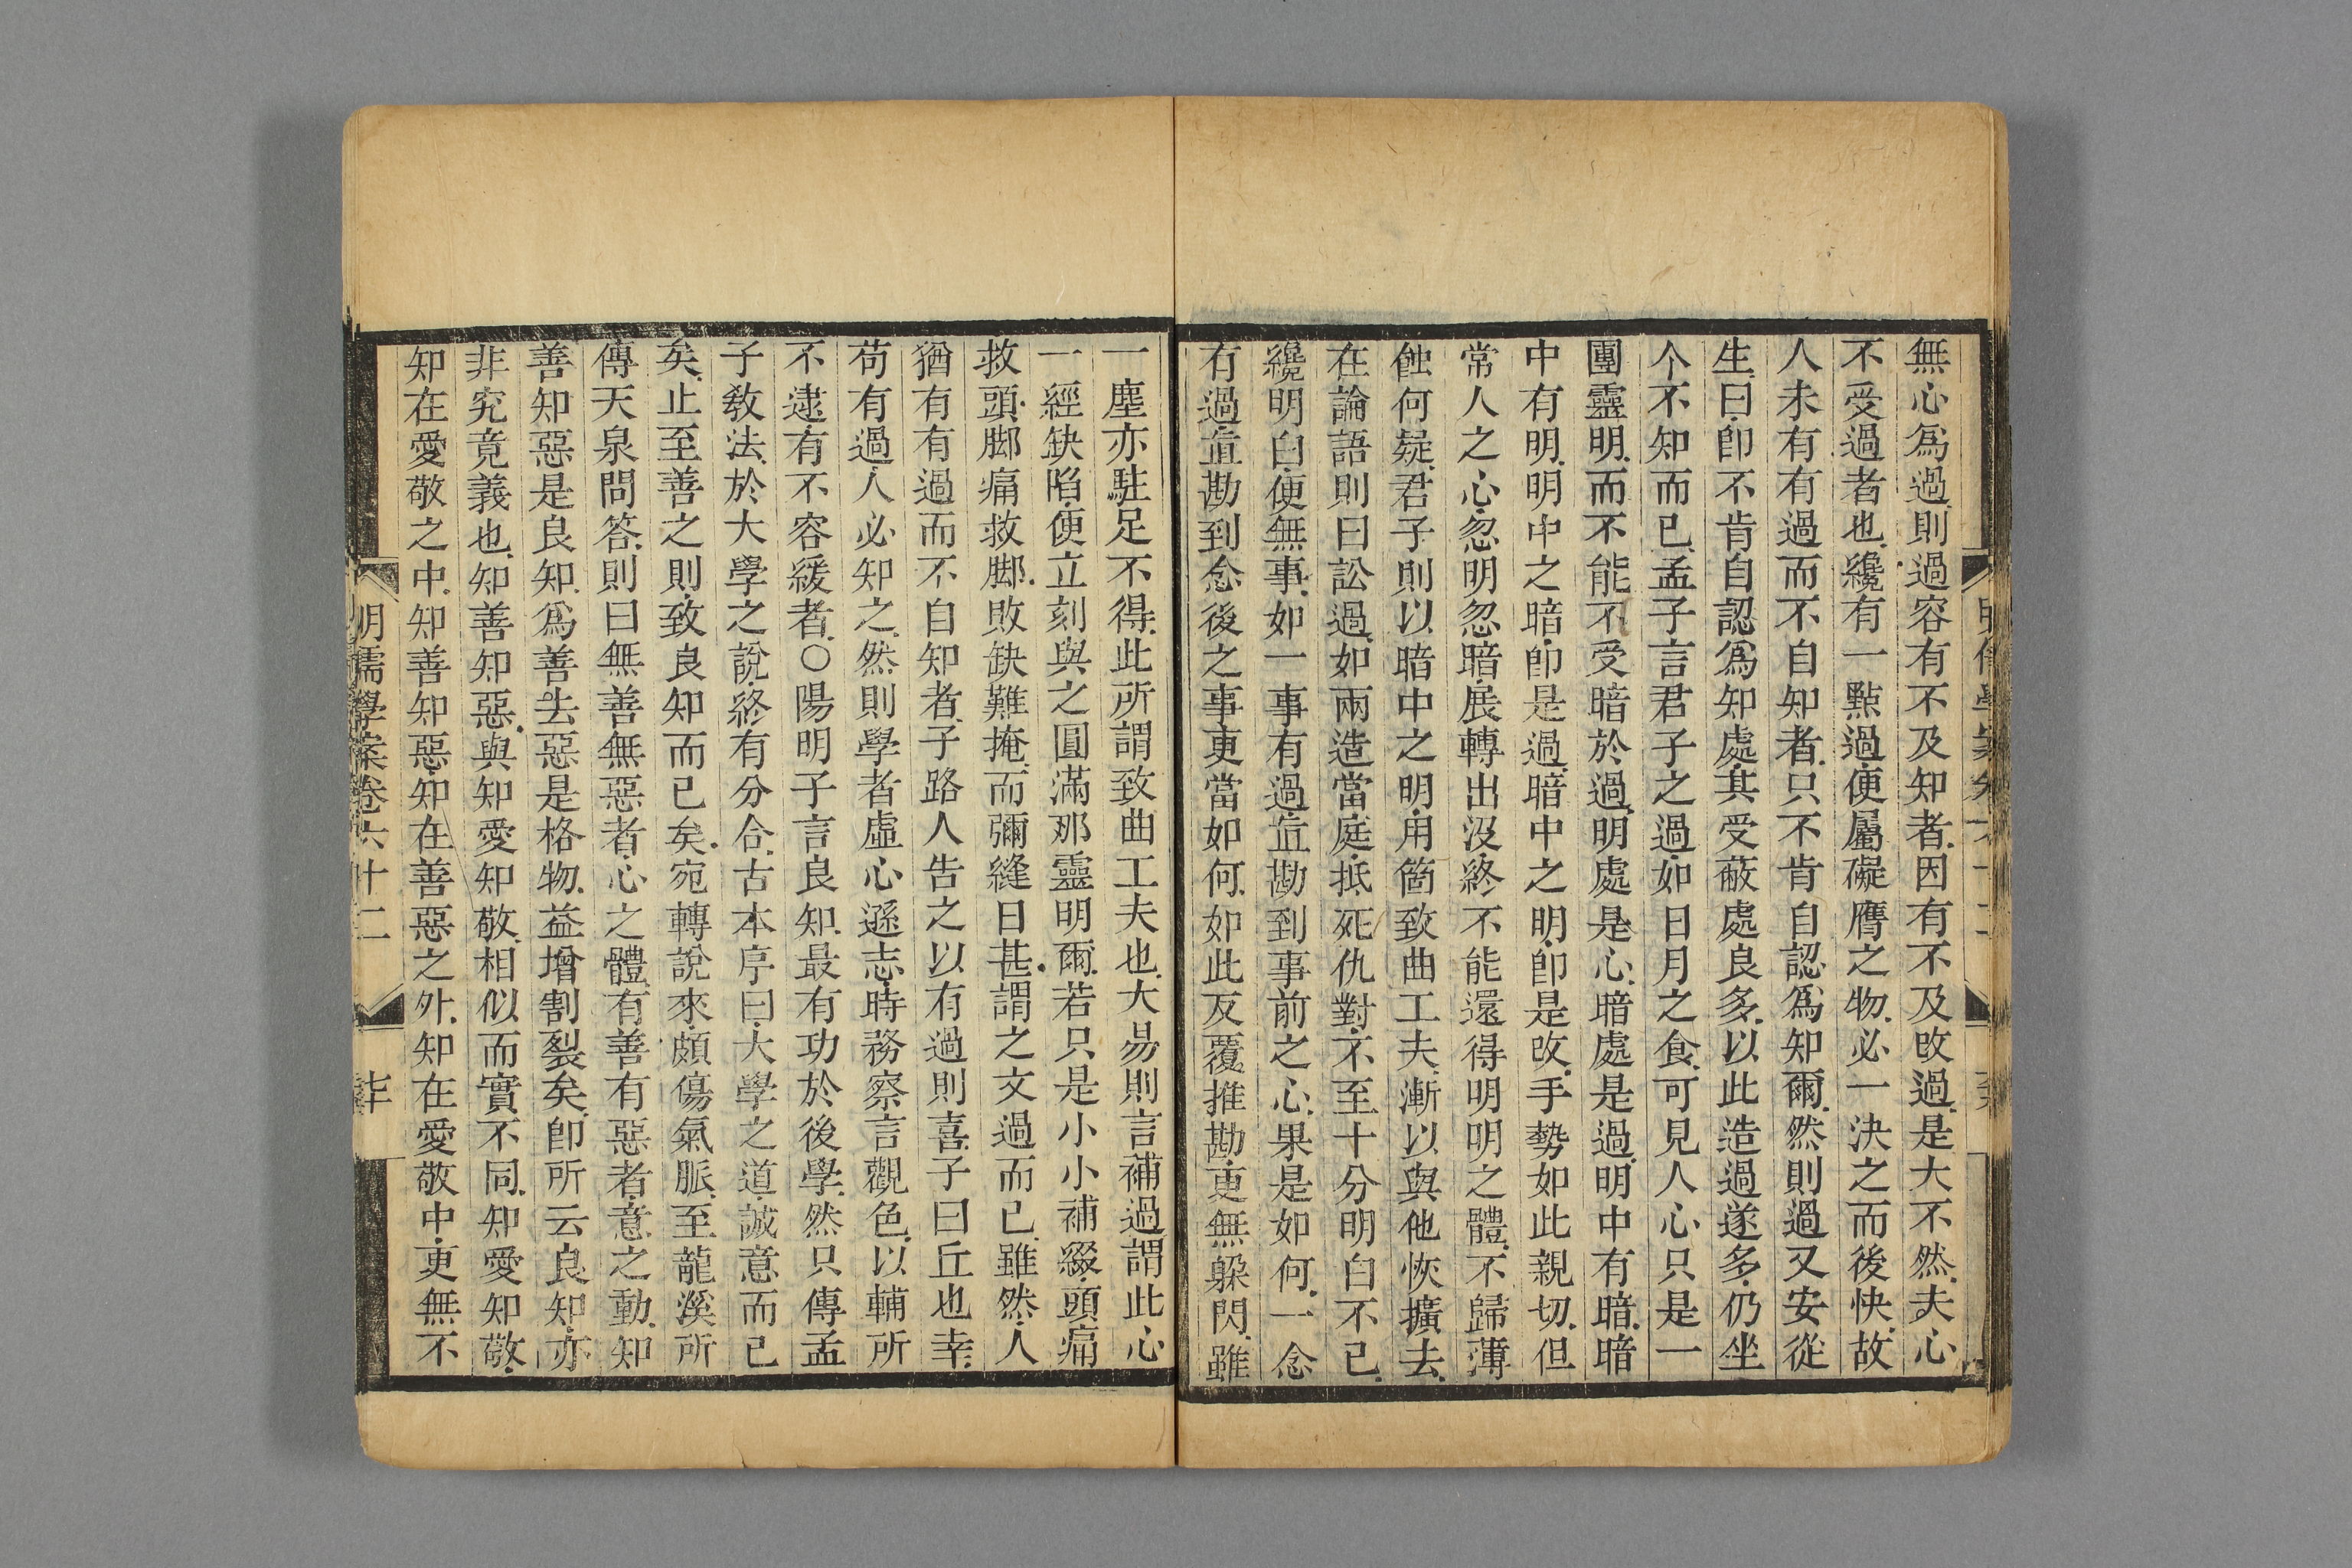 無心爲過則過容有不及知者因有不及改過是大不然夫心
不受過者也纔有一點過便屬礙膺之物必一決之而後快故
人未有有過而不自知者只不肯自認爲知爾然則過又安從
生曰卽不肯自認爲知處其受蔽處良多以此造過遂多仍坐
个不知而已孟子言君子之過如日月之食可見人心只是一
團靈明而不能不受暗於過明處是心暗處是過明中有暗暗
中有明明中之暗卽是過暗中之明卽是改手勢如此親切但
常人之心忽明忽暗展轉出沒終不能還得明明之體不歸薄
蝕何疑君子則以暗中之明用箇致曲工夫漸以與他恢擴去
在論語則曰訟過如兩造當庭抵死仇對不至十分明白不已
纔明白便無事如一事有過直勘到事前之心果是如何一念
有過直勘到念後之事更當如何如此反覆推勘更無躱閃雖
一塵亦駐足不得此所謂致曲工夫也大易則言補過謂此心
一經缺陷便立刻與之圓滿那靈明爾若只是小小補綴頭痛
救頭脚痛救脚敗缺難掩而彌縫日甚謂之文過而已雖然人
猶有有過而不自知者子路人告之以有過則喜子曰丘也幸
苟有過人必知之然則學者虛心遜志時務察言觀色以輔所
不逮有不容緩者○陽明子言良知最有功於後學然只傳孟
子敎法於大學之說終有分合古本序曰大學之道誠意而已
矣止至善之則致良知而已矣宛轉說來頗傷氣脈至龍溪所
傳天泉問答則曰無善無惡者心之體有善有惡者意之動知
善知惡是良知爲善去惡是格物益增割裂矣卽所云良知亦
非究竟義也知善知惡與知愛知敬相似而實不同知愛知敬
知在愛敬之中知善知惡知在善惡之外知在愛敬中更無不
明儒學案卷六十二